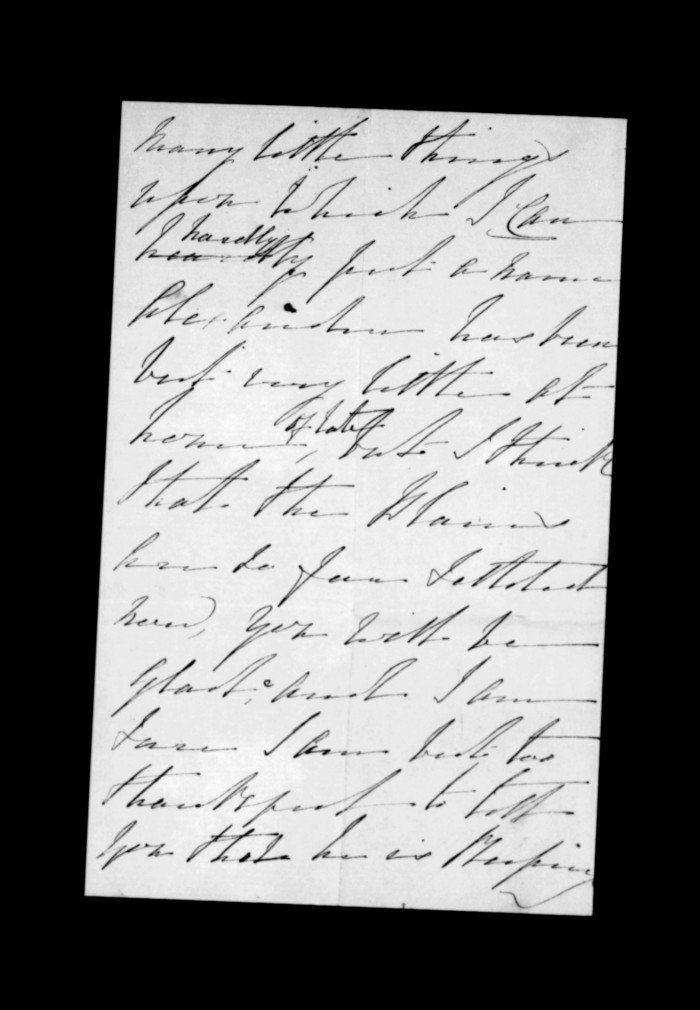 many little things
upon which I can
hardly
put a name
Alexander has been
but very little at
of late
home, but I think
that the Plains
are so far settled
now, you will be
glad, and I am
sure I am but too
thankful to tell
you that he is keeping